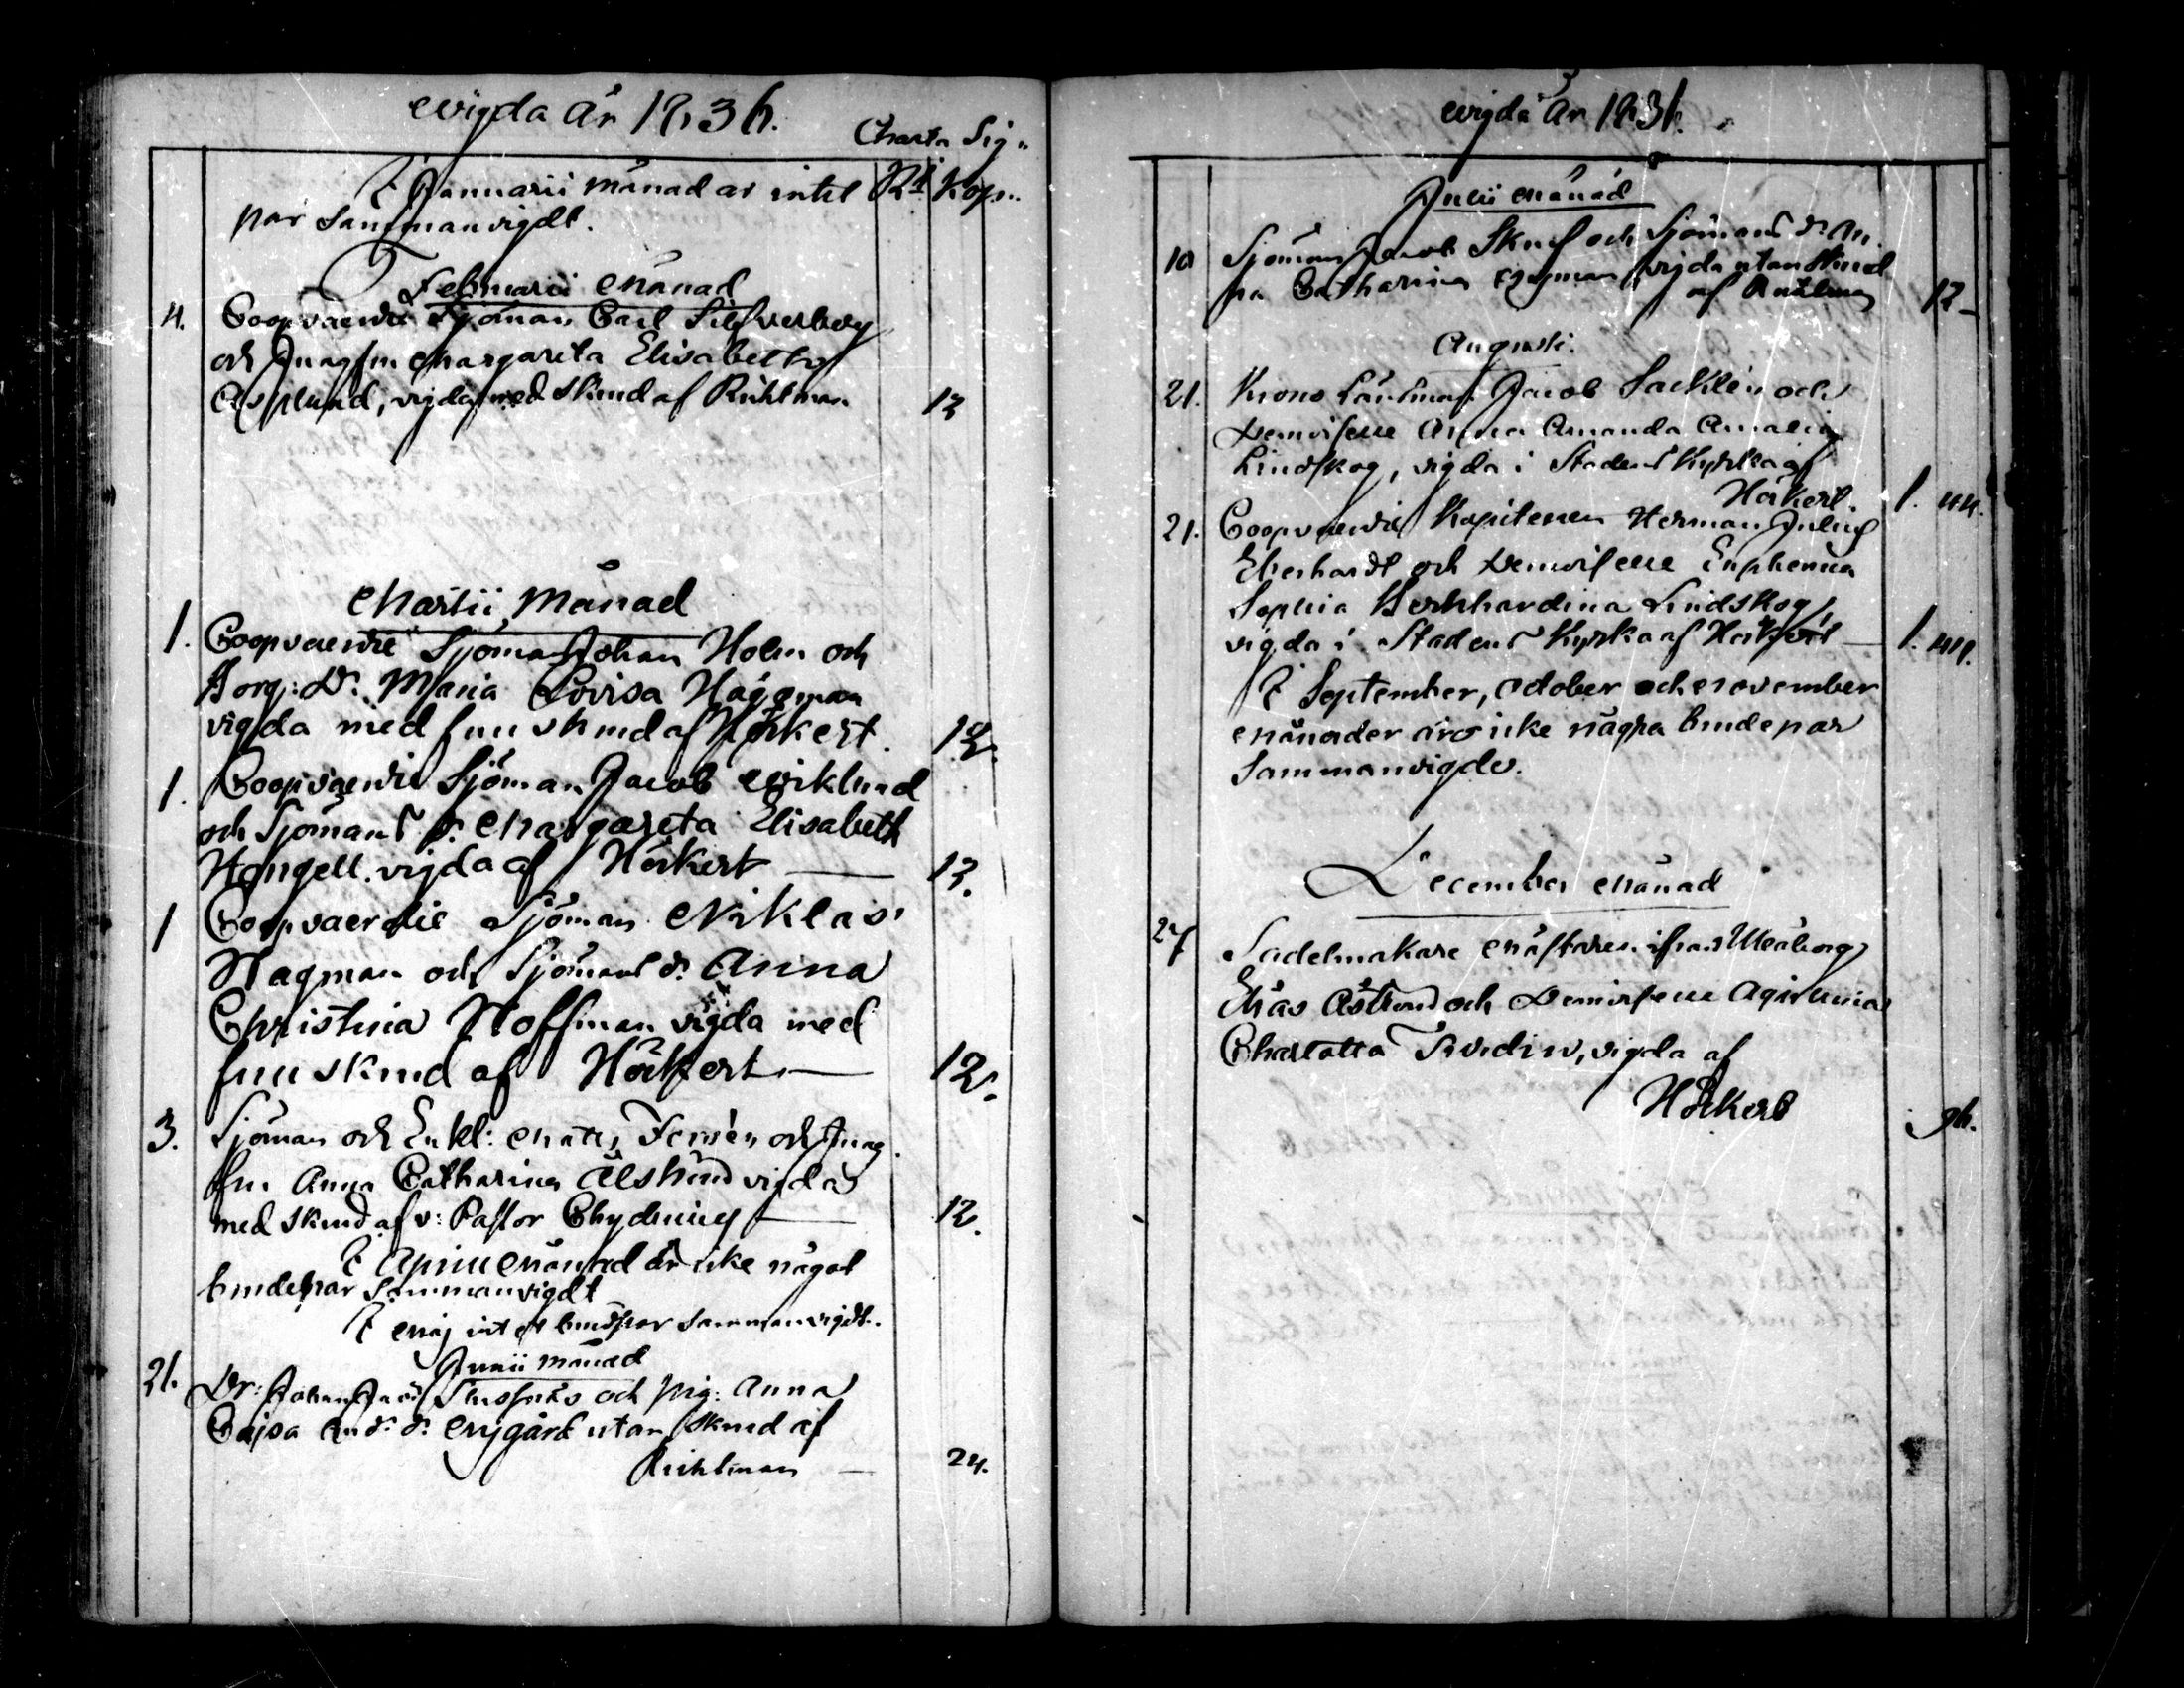 Wigda År 1836.
Charta Sig.
I Januarii månad är intet Rd Kop.
par sammanvigdt.
Februarii Månad
4. Coopvaerdie Sjöman Carl Silfverberg
och Jungfru Margareta Elisabeth
Asplund, vigda med skrud af Kuhlman 12
Martii Månad
1. Coopvaerdie Sjöman Johan Holm och
Borg: D: Maria Lovisa Häggman
vigda med full skrud af Höckert. 12.
1. Coopvaerdie Sjöman Jacob Wiklund
och Sjömans d: Margareta Elisabeth
Hongell. vigda af Höckert — 12.
1 Coopvaerdie Sjöman Niklas
Hagman och Sjömans d: Anna
Christina Hoffman vigda med
full skrud af Höckert — 12.
3. Sjöman och Enkl: Mats och Jung
fru Anna Catharina vigda
med skrud af v: Pastor Chydenius — 12.
I April Månad är icke något
brudepar sammanvigdt
I Maj intet brudpar sammanvigdt.
Junii månad
26. Dr: Johan Jacob och pig: Anna
Cajsa And: d: Nygård utan skrud af
Kuhlman — 24.
Wigda År 1836.
Julii Månad
10 Sjöman Jacob Skuf och Sjömans d: An
na Catharina vigda utan skrud
af Kuhlman 12 –
Augusti.
21. Krono Länsman Jacob Sacklén och
Demoiselle Anna Amanda Amalia
Lindskog, vigda i Stadens Kyrka af
Höckert. 1. 44.
21. Coopvaerdie Kapitenen Herman Julius
Eberhardt och Demoiselle Euphemia
Sophia Bernhardina Lindskog,
vigda i Stadens Kyrka af Höckert — 1. 44.
I September, October och November
Månader äro icke några brudepar
sammanvigde.
December Månad
27 Sadelmakare Mästaren ifrån Uleåborg
Elias Åström och Demoiselle
Charlotta vigda af
Höckert 96.